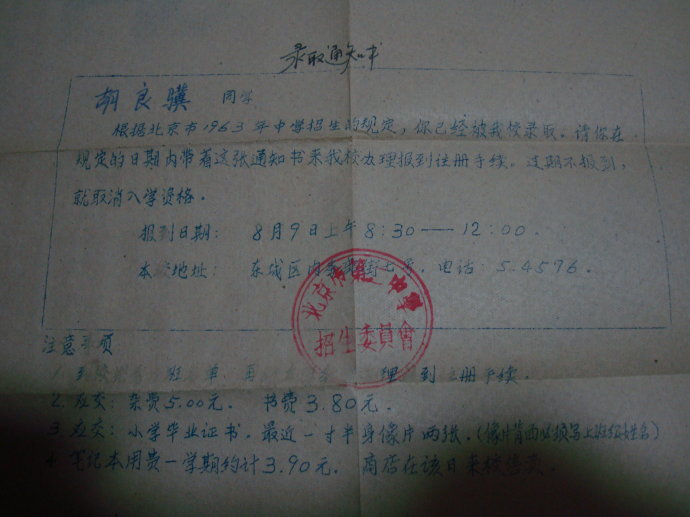 录取通知书
胡良骥 同学
根据北京市1963年中学招生的规定，你已经被我校录取。请你在
规定的日期内带着这张通知书来我校办理报到注册手续。过期不报到，
就取消入学资格。
报到日期： 8月9日上午8:30——12:00.
本校地址： 东城区内务部街七号。电话：5.4576.
北京市第二中学
招生委员會
注意事项
1. 到 册手续.
2. 应交：杂费5.00元. 书费3.80元.
3. 应交：小学毕业证书，最近一寸半身像片两张.（像片背面必须写上班级姓名）
4. 笔记本用费一学期约计3.90元. 商店在该日来校